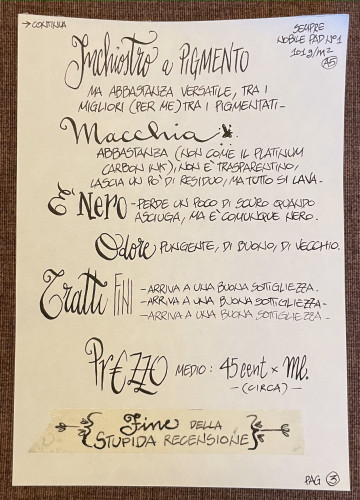 → CONTINUA
SEMPRE
NOBILE PAD Nº1
101 g/m²
A5
Inchiostro a PIGMENTO
MA ABBASTANZA VERSATILE, TRA I
MIGLIORI (PER ME) TRA I PIGMENTATI-
Macchia
ABBASTANZA (NON COME IL PLATINUM
CARBON INK), NON È TRASPARENTINO,
LASCIA UN PO' DI RESIDUO, MA TUTTO SI LAVA-
È Nero - PERDE UN POCO DI SCURO QUANDO
ASCIUGA, MA È COMUNQUE NERO.
Odore PUNGENTE, DI BUONO, DI VECCHIO.
Tratti FINI - ARRIVA A UNA BUONA SOTTIGLIEZZA.
- ARRIVA A UNA BUONA SOTTIGLIEZZA-
- ARRIVA A UNA BUONA SOTTIGLIEZZA-
PREZZO MEDIO: 45 cent × ML.
-(CIRCA)-
Fine DELLA
STUPIDA RECENSIONE
PAG 3